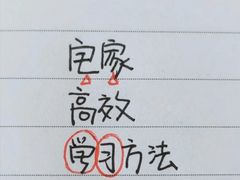 宅家
高效
学习方法